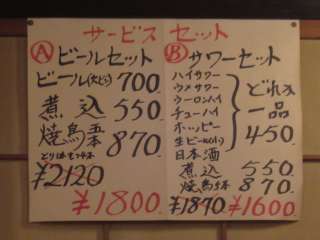 サービスセット
Ⓐ ビールセット
ビール(大びん) 700
煮込 550
焼鳥5本 870
¥2120
¥1800
Ⓑ サワーセット
ハイサワー
ウメサワー
ウーロンハイ
チューハイ
ホッピー
生ビール(小)
日本酒
どれも
一品
450
煮込 550
焼鳥5本 870
¥1870 ¥1600